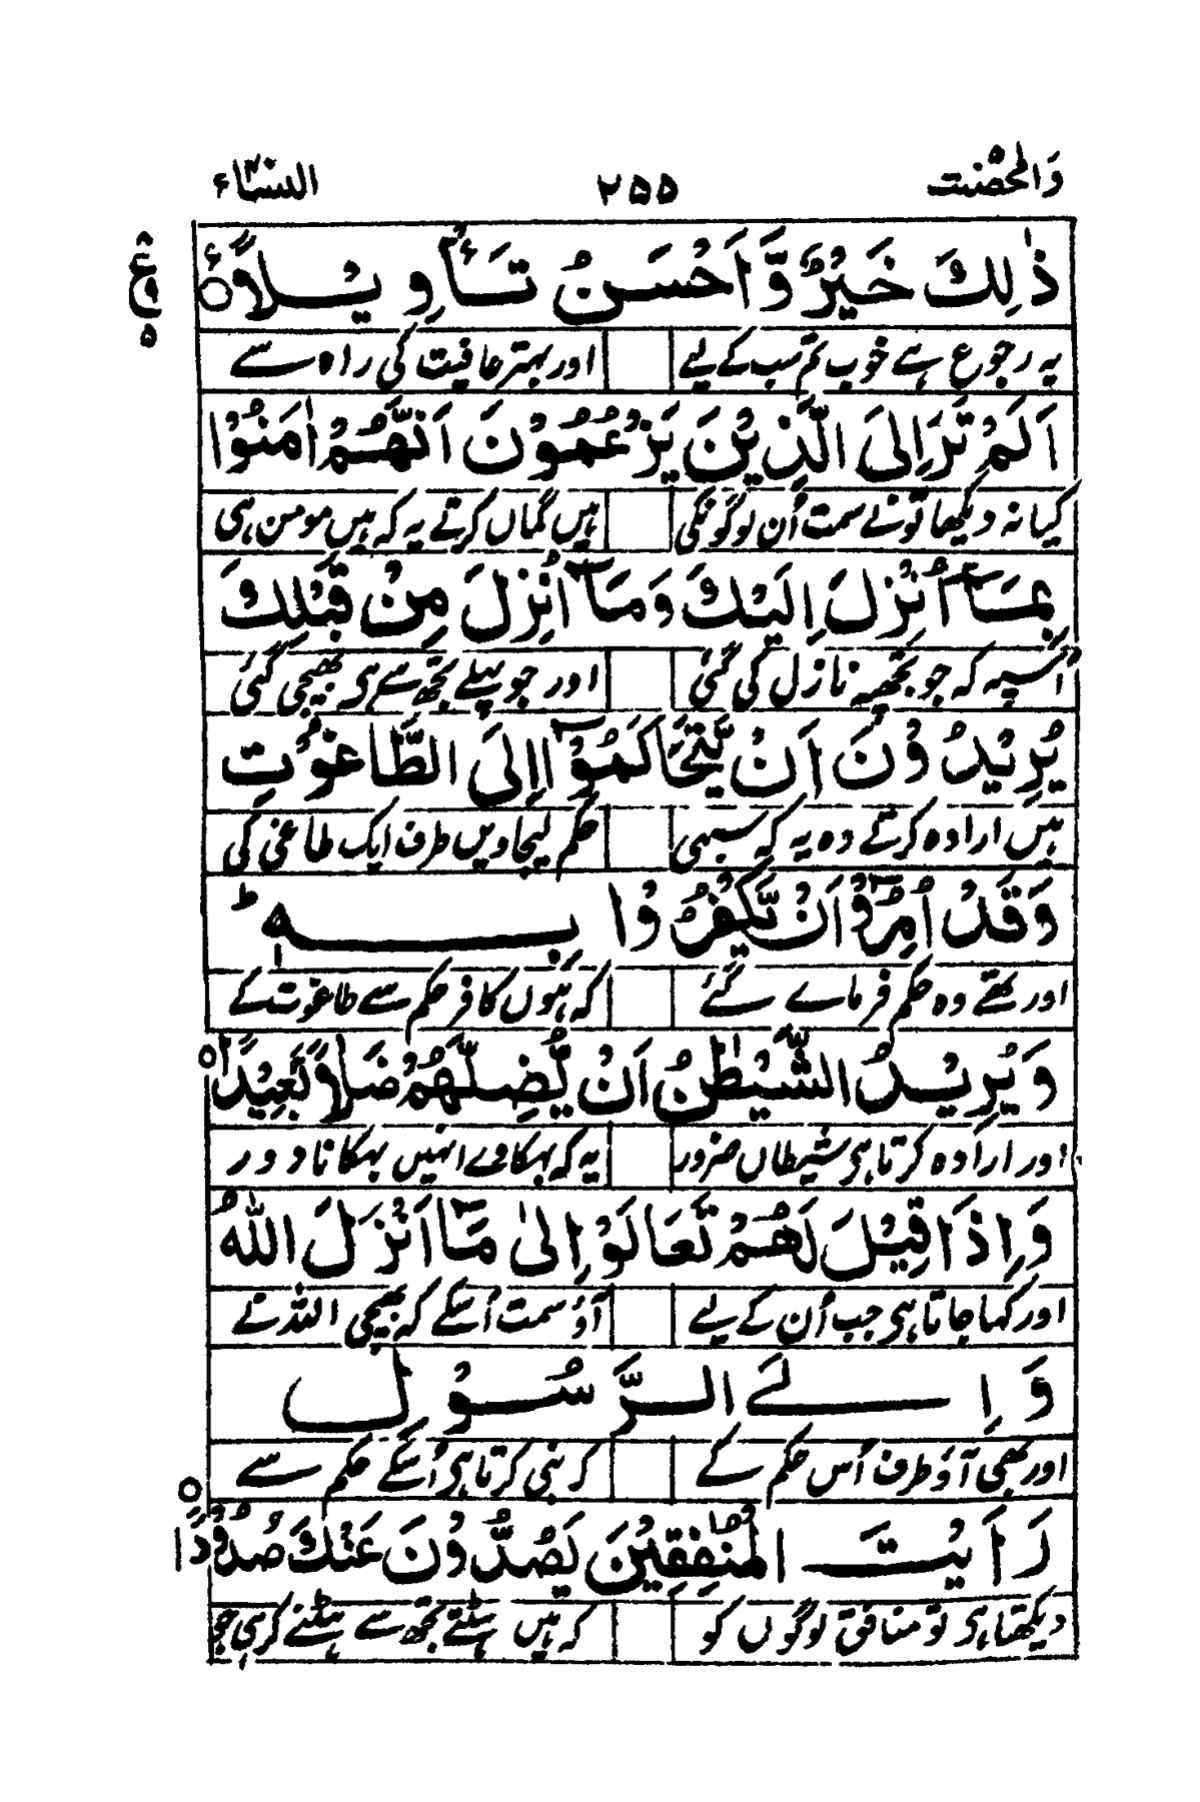 وَالمُحْصَنٰت ۲۵۵ النِّسَآء
ذٰلِكَ خَيْرٌ وَّاَحْسَنُ تَاْوِيْلًا ○
یہ رجوع ہے خوب تم سب کے لیے اور بہتر عافیت کی راہ سے
اَلَمْ تَرَ اِلَى الَّذِيْنَ يَزْعُمُوْنَ اَنَّهُمْ اٰمَنُوْا
کیا نہ دیکھا تونے سمت اُن لوگونکی ہیں گماں کرتے یہ کہ ہیں مومن ہی
بِمَآ اُنْزِلَ اِلَيْكَ وَمَآ اُنْزِلَ مِنْ قَبْلِكَ
اُسپہ کہ جو تجھپہ نازل کی گئی اور جو پہلے تجھ سے ہی بھیجی گئی
يُرِيْدُوْنَ اَنْ يَّتَحَاكَمُوْٓا اِلَى الطَّاغُوْتِ
ہیں ارادہ کرتے وہ یہ کہ سبھی حکم لیجاویں طرف ایک طاغی کی
وَقَدْ اُمِرُوْٓا اَنْ يَّكْفُرُوْا بِهٖ ؕ
اور تھے وہ حکم فرمائے گئے کہ ہوں کافر حکم سے طاغوت کے
وَيُرِيْدُ الشَّيْطٰنُ اَنْ يُّضِلَّهُمْ ضَلٰلًاۢ بَعِيْدًا ○
اور ارادہ کرتا ہی شیطاں ضرور یہ کہ بہکاوے انہیں بہکانا دور
وَاِذَا قِيْلَ لَهُمْ تَعَالَوْا اِلٰى مَآ اَنْزَلَ اللّٰهُ
اور کہا جاتا ہی جب اُن کے لیے آؤ سمت اُسکے کہ بھیجی اللہ نے
وَ اِلَے الرَّسُوْلِ
اور بھی آؤ طرف اُس حکم کے کر نبی کرتا ہی اُسکے حکم سے
رَاَيْتَ الْمُنٰفِقِيْنَ يَصُدُّوْنَ عَنْكَ صُدُوْدًا ○
دیکھتا ہی تو منافق لوگوں کو کہ ہیں ہٹتے تجھ سے ہٹنے کر ہی جو
ع
۵